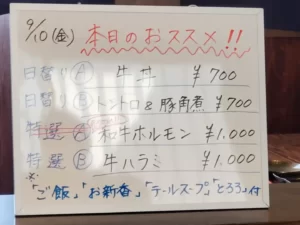 9/10(金) 本日のおススメ!!
日替り Ⓐ 牛丼 ¥700
日替り Ⓑ トントロ & 豚角煮 ¥700
特選 Ⓐ 和牛ホルモン ¥1.000
特選 Ⓑ 牛ハラミ ¥1.000
※「ご飯」「お新香」「テールスープ」「とろろ」付